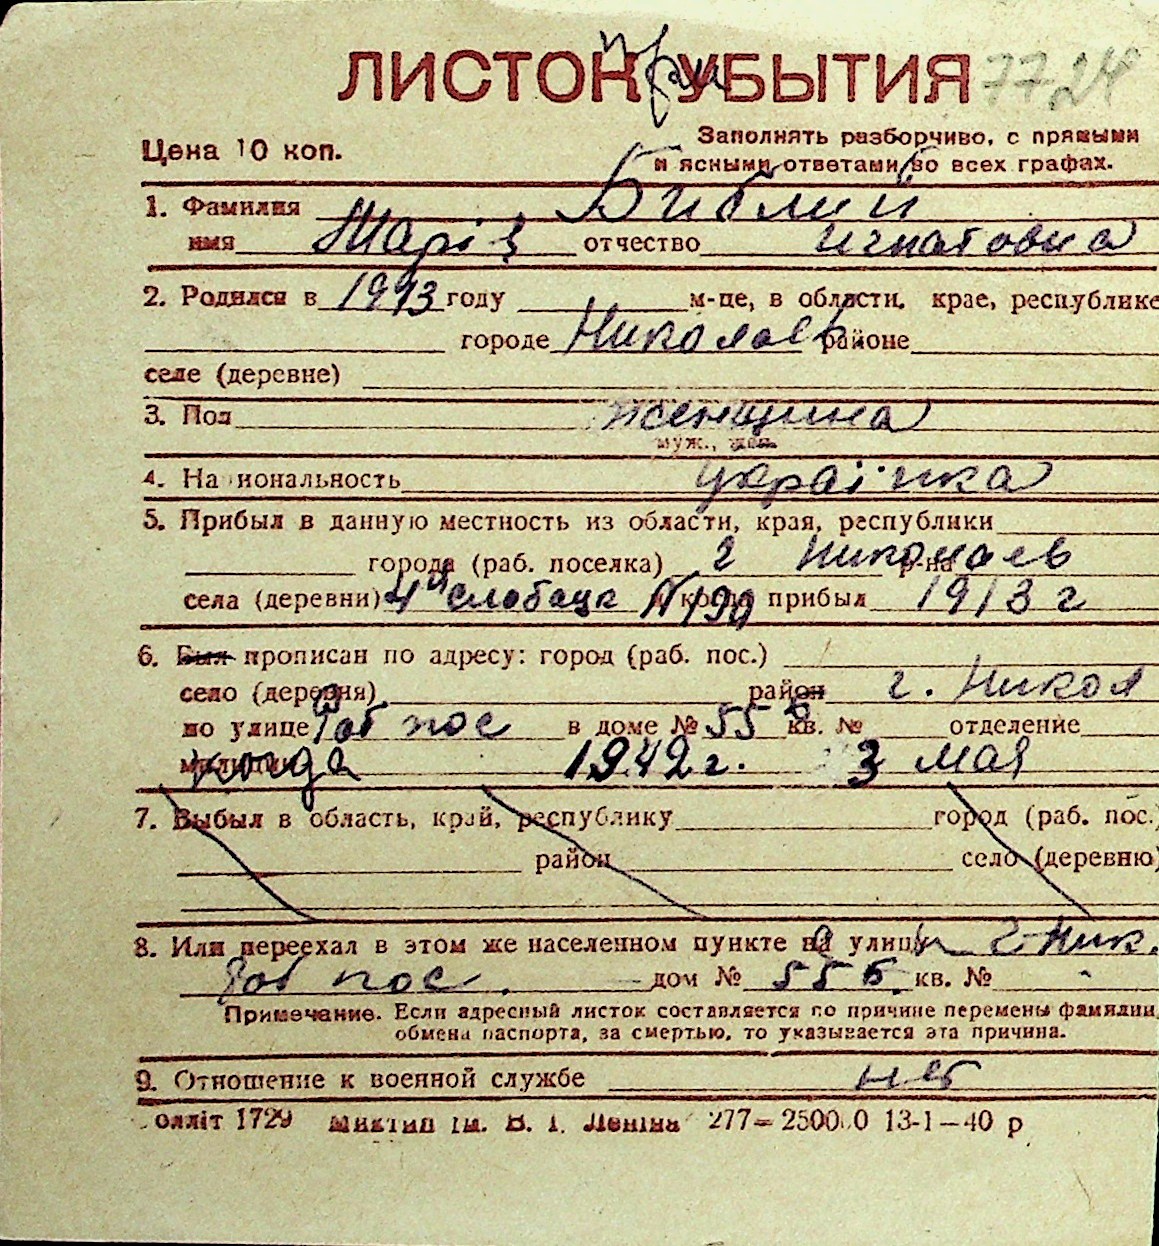 ЛИСТОК УБЫТИЯ 7724
Цена 10 коп.
Заполнять разборчиво, с прямыми
и ясными ответами во всех графах.
1. Фамилия Библий
имя Марія отчество Игнатовна
2. Родился в 1913 году м-це, в области, крае, республике
городе Николаев районе
селе (деревне)
3. Пол женщина
муж., жен.
4. Национальность українка
5. Прибыл в данную местность из области, края, республики
города (раб. поселка) г Николаев р-на
села (деревни) 4й Слободск №190 и когда прибыл 1913 г
6. Был прописан по адресу: город (раб. пос.)
село (деревня) район г. Никол
по улице Раб пос в доме № 55 б кв. № отделение
милиции когда 1942 г. 3 мая
7. Выбыл в область, край, республику город (раб. пос.)
район село (деревню)
8. Или переехал в этом же населенном пункте на улицу г. Ник.
Раб пос. дом № 55 б. кв. № -
Примечание. Если адресный листок составляется по причине перемены фамилии,
обмена паспорта, за смертью, то указывается эта причина.
9. Отношение к военной службе нет
олліт 1729 ім. В. І. Леніна 277—25000 13-1—40 р